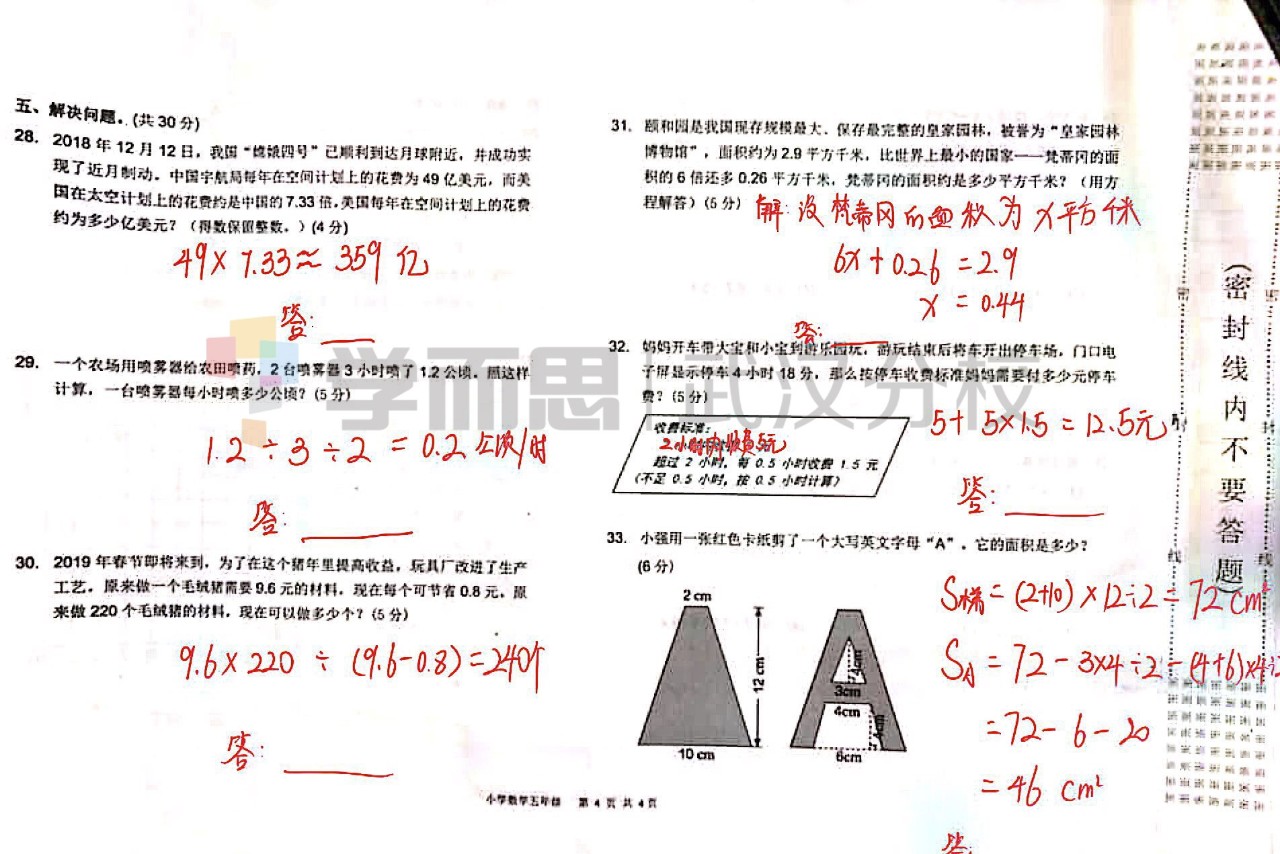 五、解决问题。(共30分)
28. 2018年12月12日，我国“嫦娥四号”已顺利到达月球附近，并成功实
现了近月制动。中国宇航局每年在空间计划上的花费为49亿美元，而美
国在太空计划上的花费约是中国的7.33倍，美国每年在空间计划上的花费
约为多少亿美元？（得数保留整数。）(4分)
49×7.33≈359亿
答:
29. 一个农场用喷雾器给农田喷药，2台喷雾器3小时喷了1.2公顷。照这样
计算，一台喷雾器每小时喷多少公顷？(5分)
1.2÷3÷2=0.2公顷/时
答:
30. 2019年春节即将来到，为了在这个猪年里提高收益，玩具厂改进了生产
工艺。原来做一个毛绒猪需要9.6元的材料，现在每个可节省0.8元。原
来做220个毛绒猪的材料，现在可以做多少个？(5分)
9.6×220÷(9.6-0.8)=240个
答:
31. 颐和园是我国现存规模最大、保存最完整的皇家园林，被誉为“皇家园林
博物馆”，面积约为2.9平方千米，比世界上最小的国家——梵蒂冈的面
积的6倍还多0.26平方千米，梵蒂冈的面积约是多少平方千米？（用方
程解答）(5分)
解:设梵蒂冈的面积为x平方千米
6x+0.26=2.9
x=0.44
答:
32. 妈妈开车带大宝和小宝到游乐园玩，游玩结束后将车开出停车场，门口电
子屏显示停车4小时18分，那么按停车收费标准妈妈需要付多少元停车
费？(5分)
收费标准:
2小时内收费5元
超过2小时，每0.5小时收费1.5元
（不足0.5小时，按0.5小时计算）
5+5×1.5=12.5元
答:
33. 小强用一张红色卡纸剪了一个大写英文字母“A”，它的面积是多少？
(6分)
2 cm
12 cm
10 cm
4cm
3cm
4cm
4cm
6cm
S梯=(2+10)×12÷2=72cm²
SA=72-3×4÷2-(4+6)×4÷2
=72-6-20
=46cm²
答:
小学数学五年级 第4页 共4页
学而思 武汉分校
（密封线内不要答题）
密
封
线
密
封
线